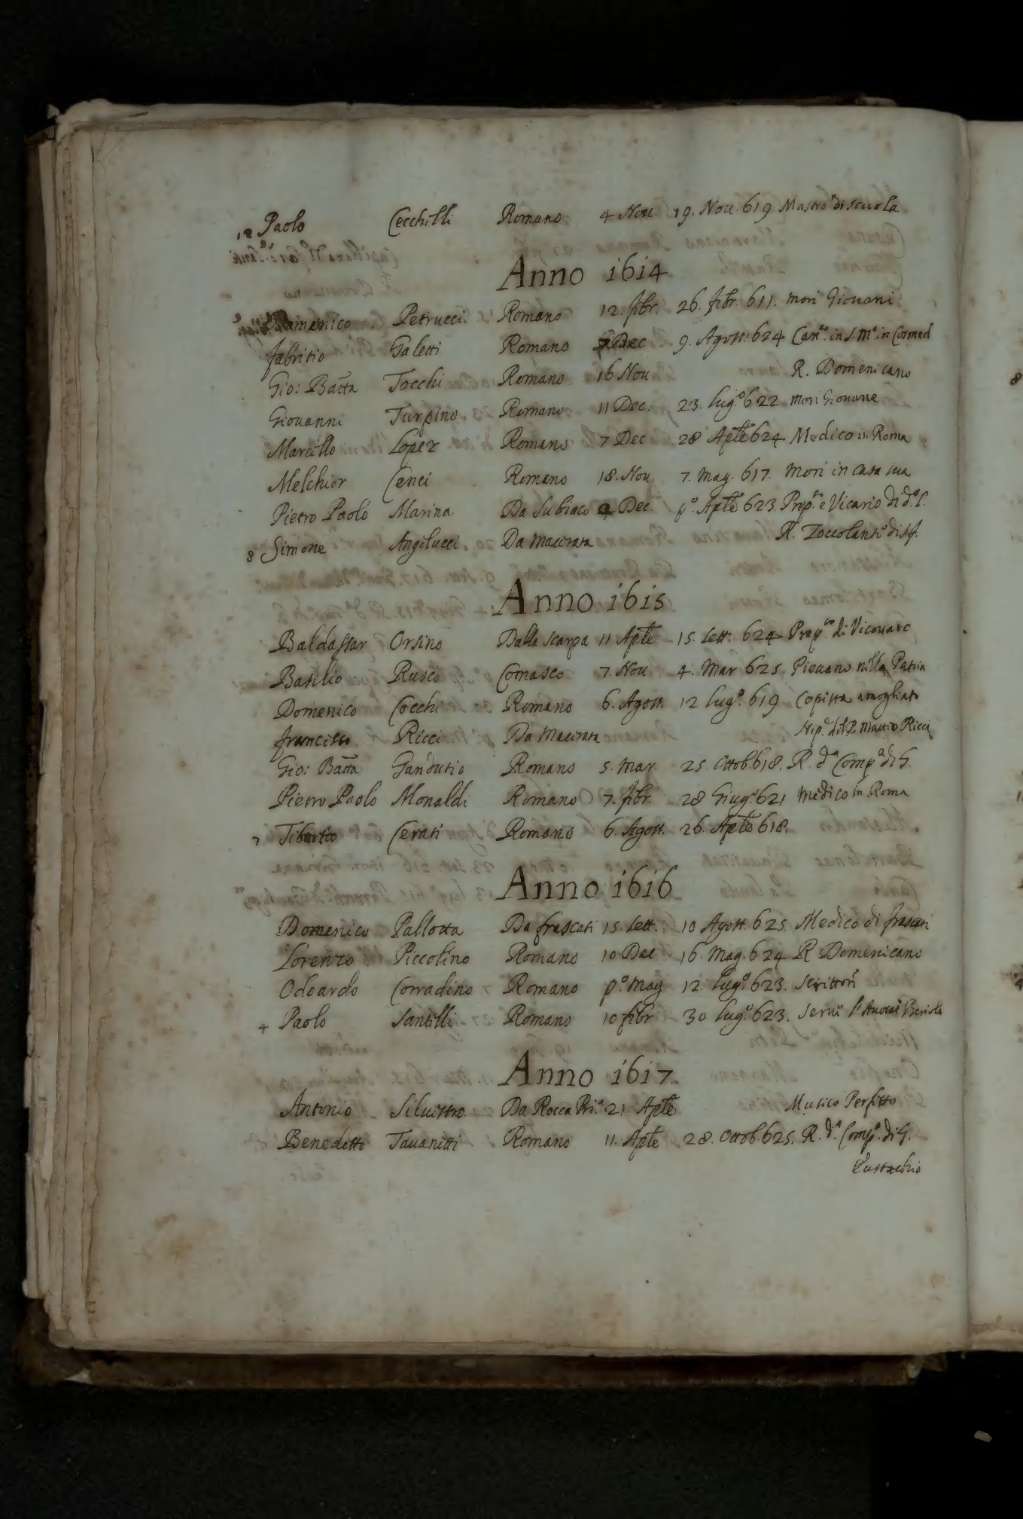 12 Paolo Cecchilli Romano 4 Nou 19. Nou. 619 Mastro di scuola
Anno 1614
Domenico Petrucci Romano 12. fibr. 26. fibr. 611. mori Giouani
fabritio Galetti Romano 7 Dec 9. Agost. 624 Can.co in S. M.a in Cosmed
Gio: Batta Tocchi Romano 16 Nou R. Domenicano
Giouanni Turpino Romano 11 Dec. 23. lug.o 622 mori Giouane
Marcillo Lopez Romano 7 Dec 28 Aple 624 Medico in Roma
Melchior Cenci Romano 18. Nou 7. Mag. 617. Mori in casa sua
Pietro Paolo Marina Da Subiaco 4 Dec. p.o Aple 623 e Vicario di
8 Simone Angilucci Da Macerata R. Zoccolant.o di
Anno 1615
Baldassar Orsino Dalla scarpa 11 Aple 15. Sett. 624 di Vicouaro
Basilio Rusco Comasco 7. Nou 4. Mar 625. Pieuano nilla Patria
Domenico Cocchi Romano 6. Agost. 12 lug.o 619 Copista amogliato
francisco Ricci Da Macerata Nip.o dil P. Matteo Ricci
Gio: Batta Gandutio Romano 5. Mar 25. Ottob 618. R. d.a Comp.a di G.
Pietro Paolo Monaldi Romano 7. fibr. 28 Giug.o 621 medico in Roma
7 Tiberio Cerasi Romano 6. Agost. 26. Aple 618.
Anno 1616
Domenico Pallotta Da frascati 15. Sett. 10 Agost. 625. Medico di frascati
Lorenzo Piccolino Romano 10 Dec 16. Mag. 624 R Domenicano
Odoardo Corradino Romano p.o may 12 lug.o 623. Scrittor
4 Paolo Santilli Romano 10 fibr 30 lug.o 623.
Anno 1617
Antonio Siluistro Da Rocca Pri.a 21 Aple Musico Perfetto
Benedetti Tauanitti Romano 11. Aple 28. Ottob. 625. R. d.a Comp.a di G.
Eustachio